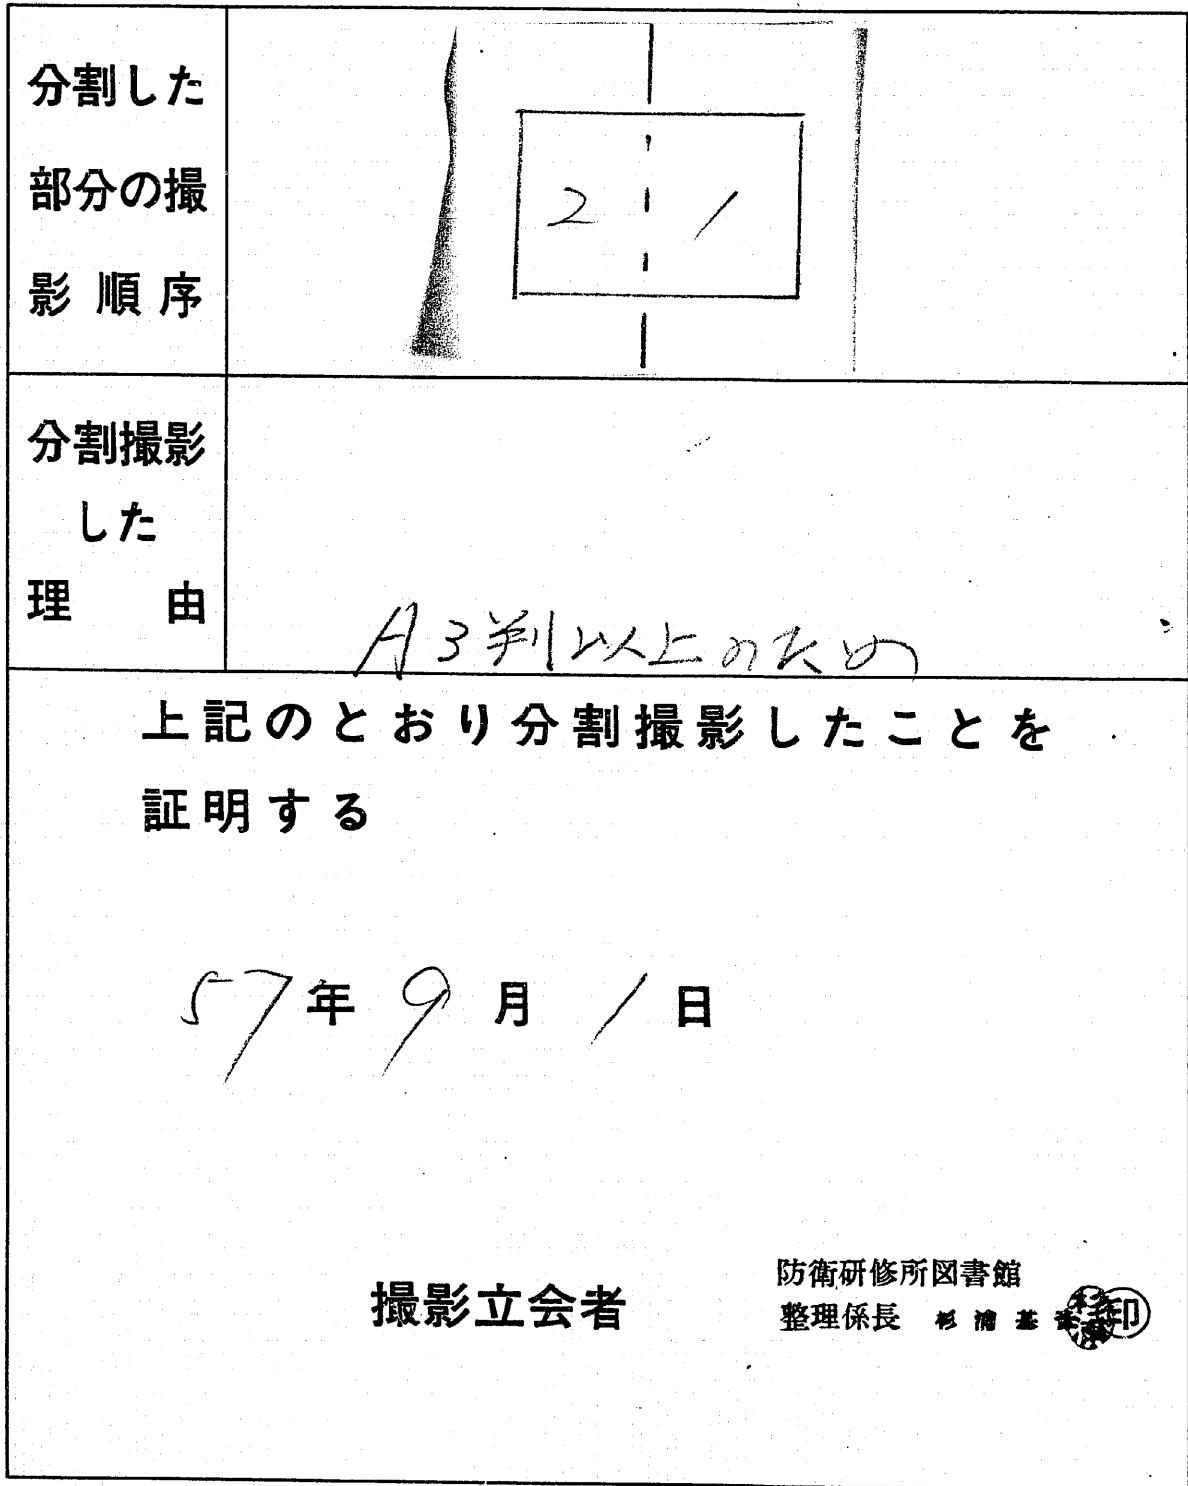 分割した
部分の撮
影順序
2 1
分割撮影
した
理由
A3判以上のため
上記のとおり分割撮影したことを
証明する
57年9月1日
撮影立会者
防衛研修所図書館
整理係長 杉浦基
印